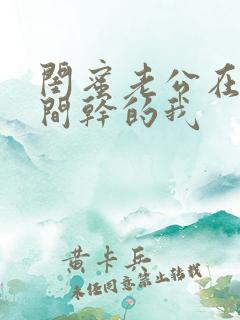 閨蜜老公在
間幹的我
黃卡兵
未经同意禁止转载